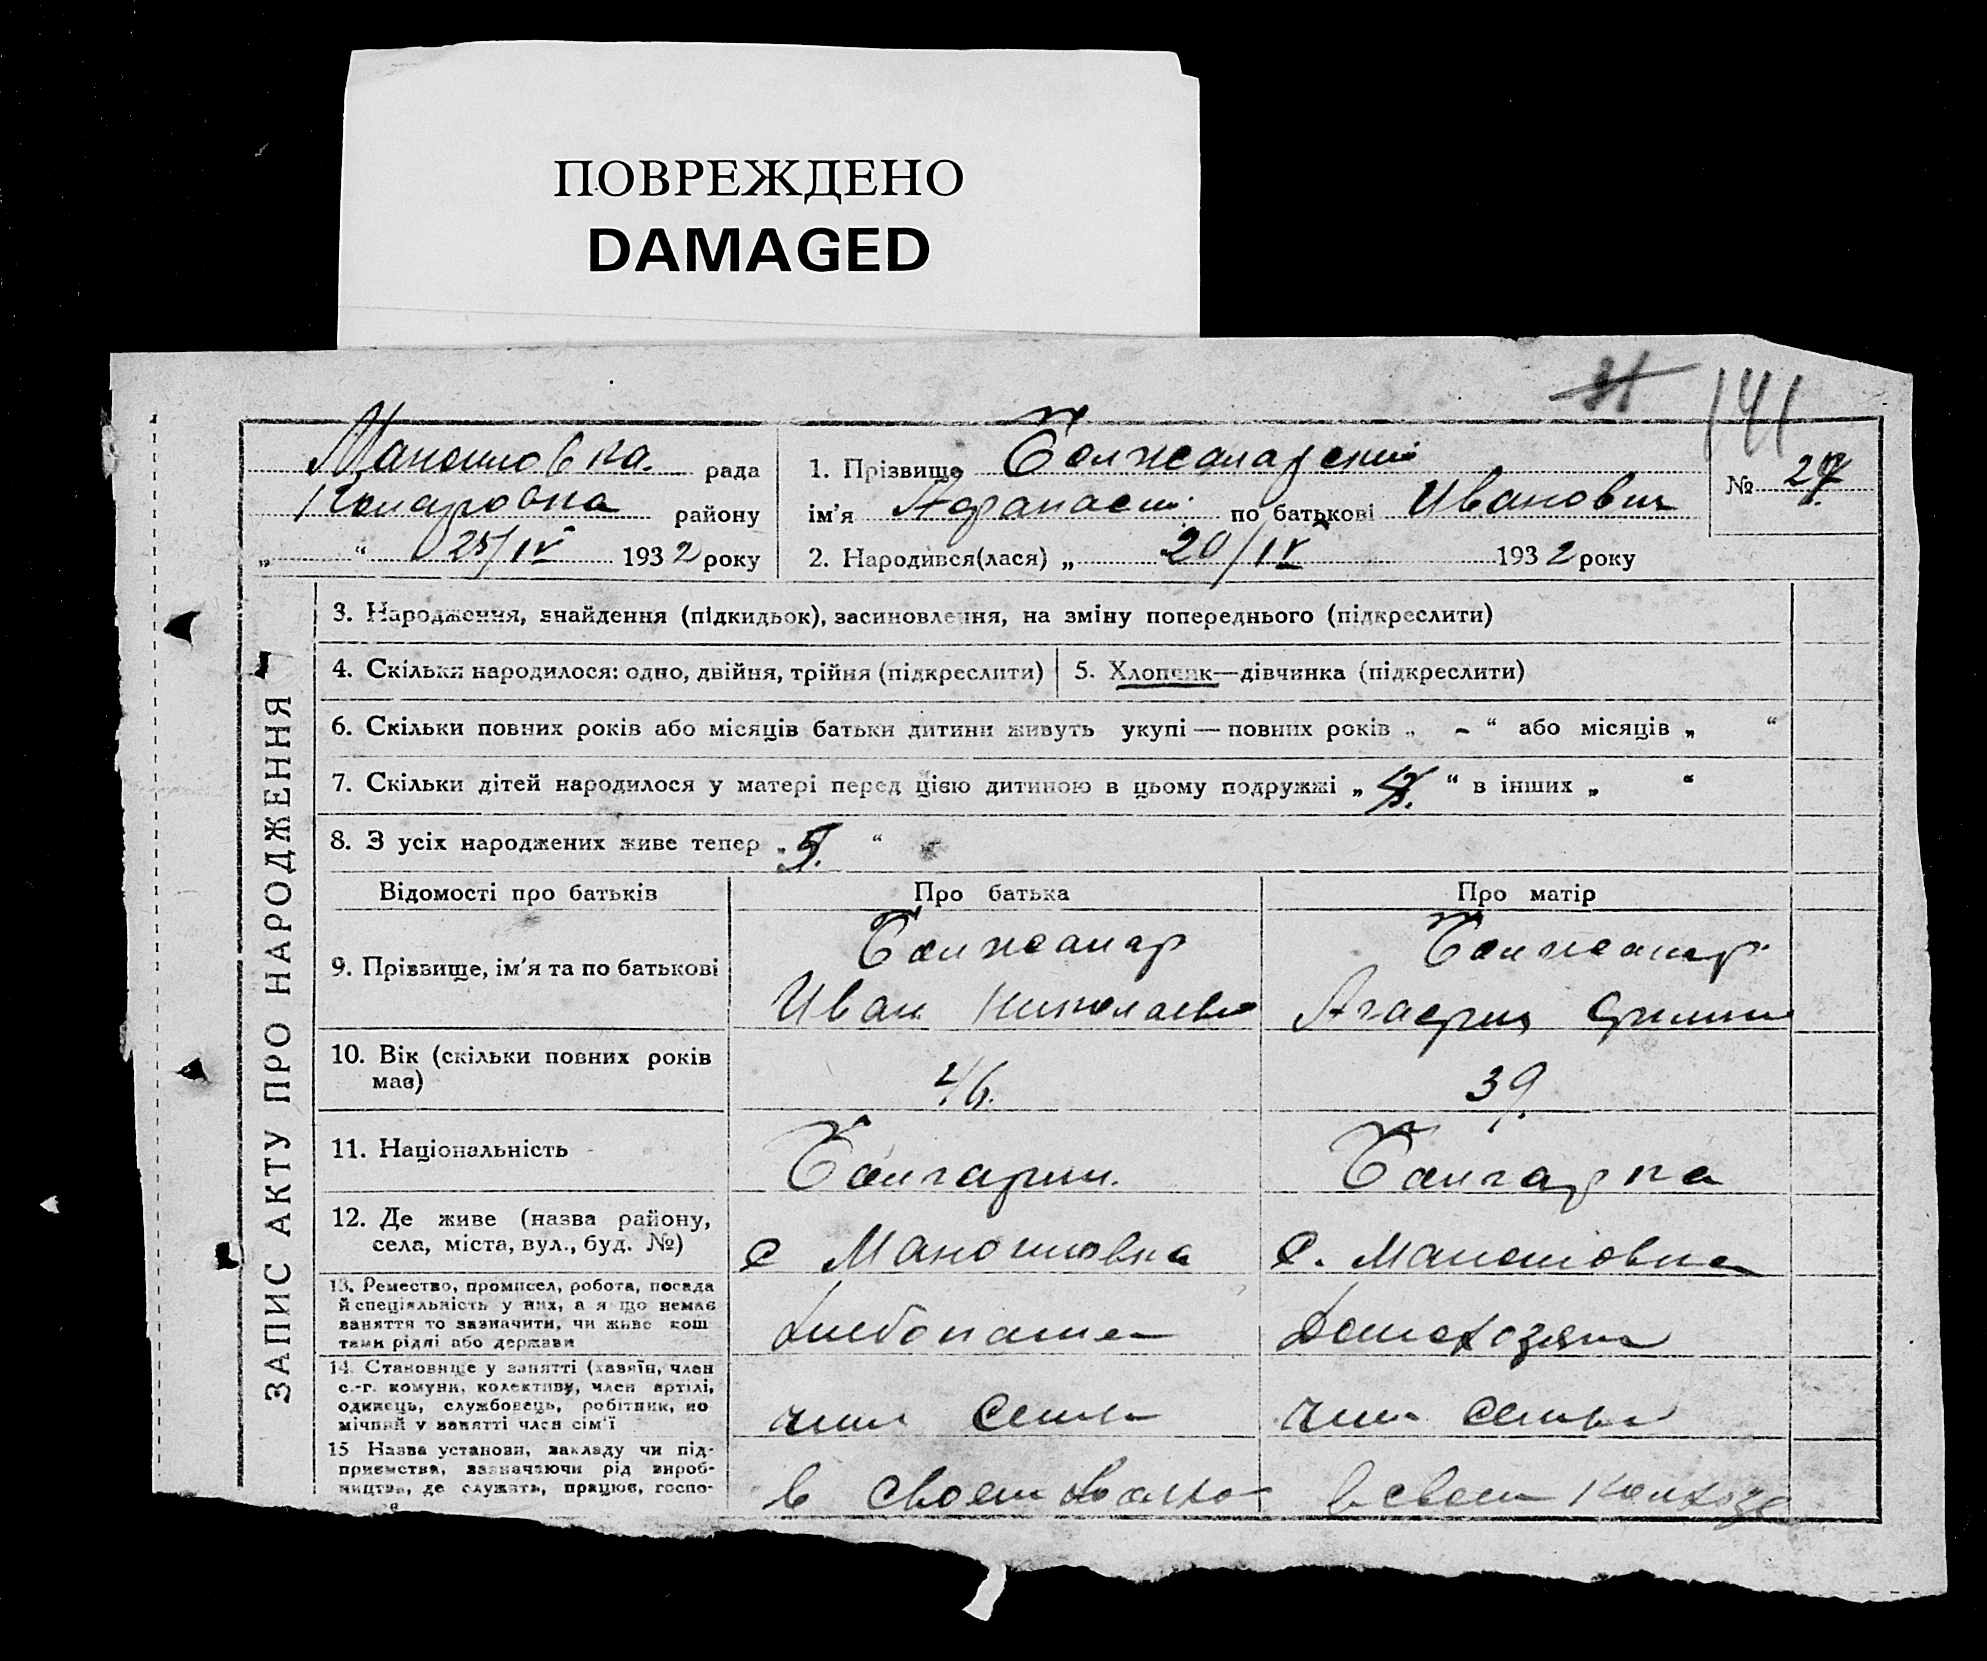 ПОВРЕЖДЕНО
DAMAGED
141
рада
району
„ “ 25/IV 1932 року
1. Прізвище
ім'я Афанасий по батькові Иванович
№ 27
2. Народився(лася) „ 20/IV 1932 року
ЗАПИС АКТУ ПРО НАРОДЖЕННЯ
3. Народження, знайдення (підкидьок), засиновлення, на зміну попереднього (підкреслити)
4. Скільки народилося: одно, двійня, трійня (підкреслити)
5. Хлопчик—дівчинка (підкреслити)
6. Скільки повних років або місяців батьки дитини живуть укупі — повних років „ - “ або місяців „ “
7. Скільки дітей народилося у матері перед цією дитиною в цьому подружжі „ “ в інших „ “
8. З усіх народжених живе тепер „ 5. “
Відомості про батьків
Про батька
Про матір
9. Прізвище, ім'я та по батькові
Иван Николаев
Агафия
10. Вік (скільки повних років
має)
46.
39.
11. Національність
Болгарин.
Болгарка
12. Де живе (назва району,
села, міста, вул., буд. №)
с Маношовка
с. Маношовка
13. Ремество, промисел, робота, посада
й спеціяльність у них, а якщо немає
заняття то зазначити, чи живе кош
тами рідні або держави
Хлебопаше
Домохозяка
14. Становище у занятті (хазяїн, член
с.-г. комуни, колективу, член артілі,
одинець, службовець, робітник, по
мічний у занятті член сім'ї
член семьи
член семьи
15 Назва установи, закладу чи під-
приємства, зазначаючи рід вироб-
ництва, де служить, працює, госпо-
в своем колхо
в своем колхозе